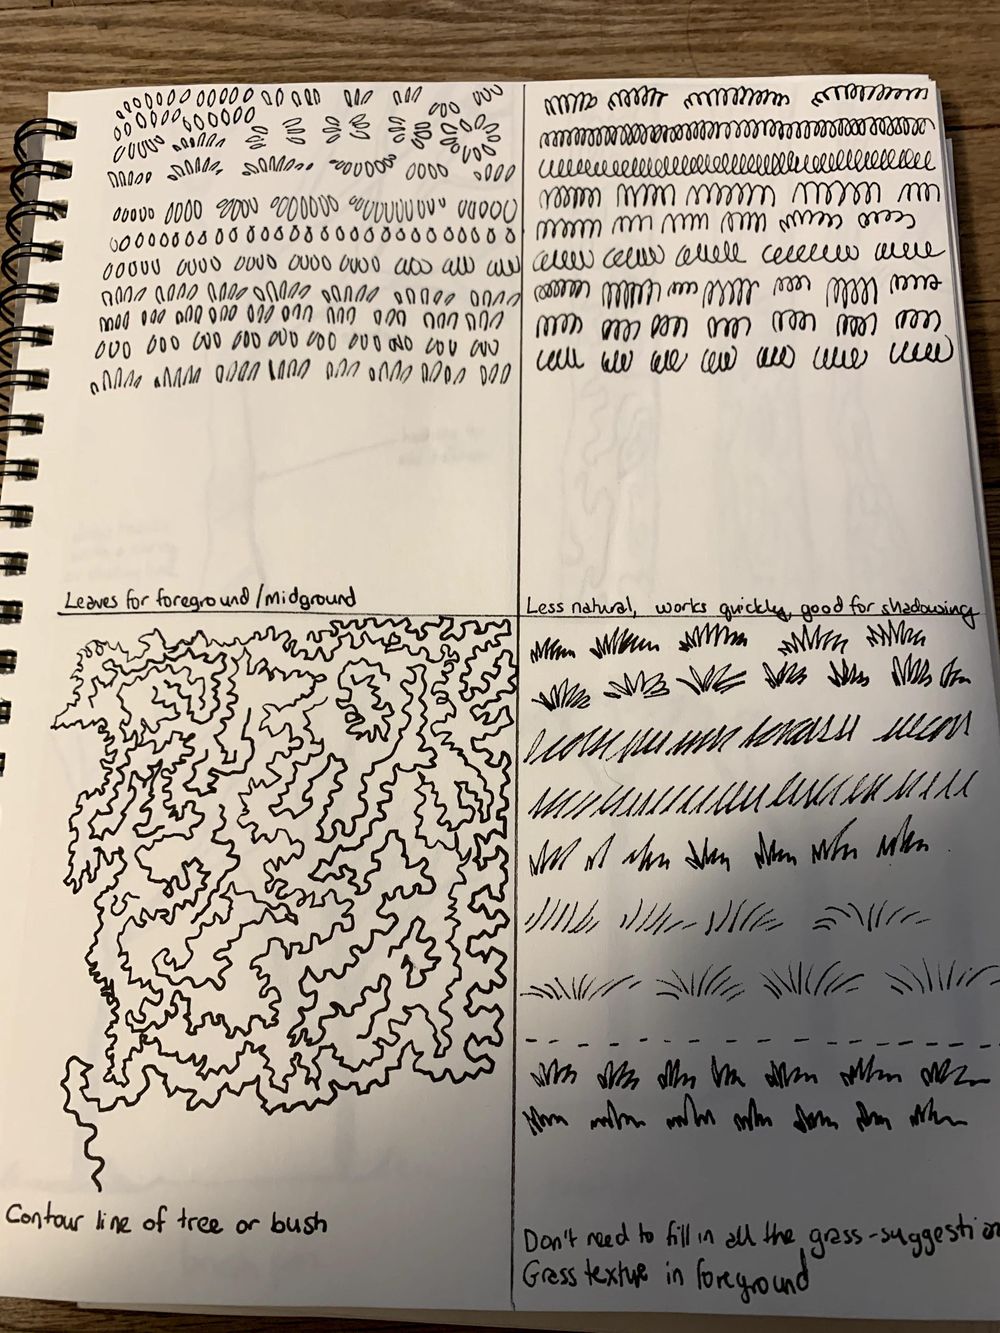 Leaves for foreground/midground
Less natural, works quickly, good for shadowing
Contour line of tree or bush
Don't need to fill in all the grass-suggestion
Grass texture in foreground